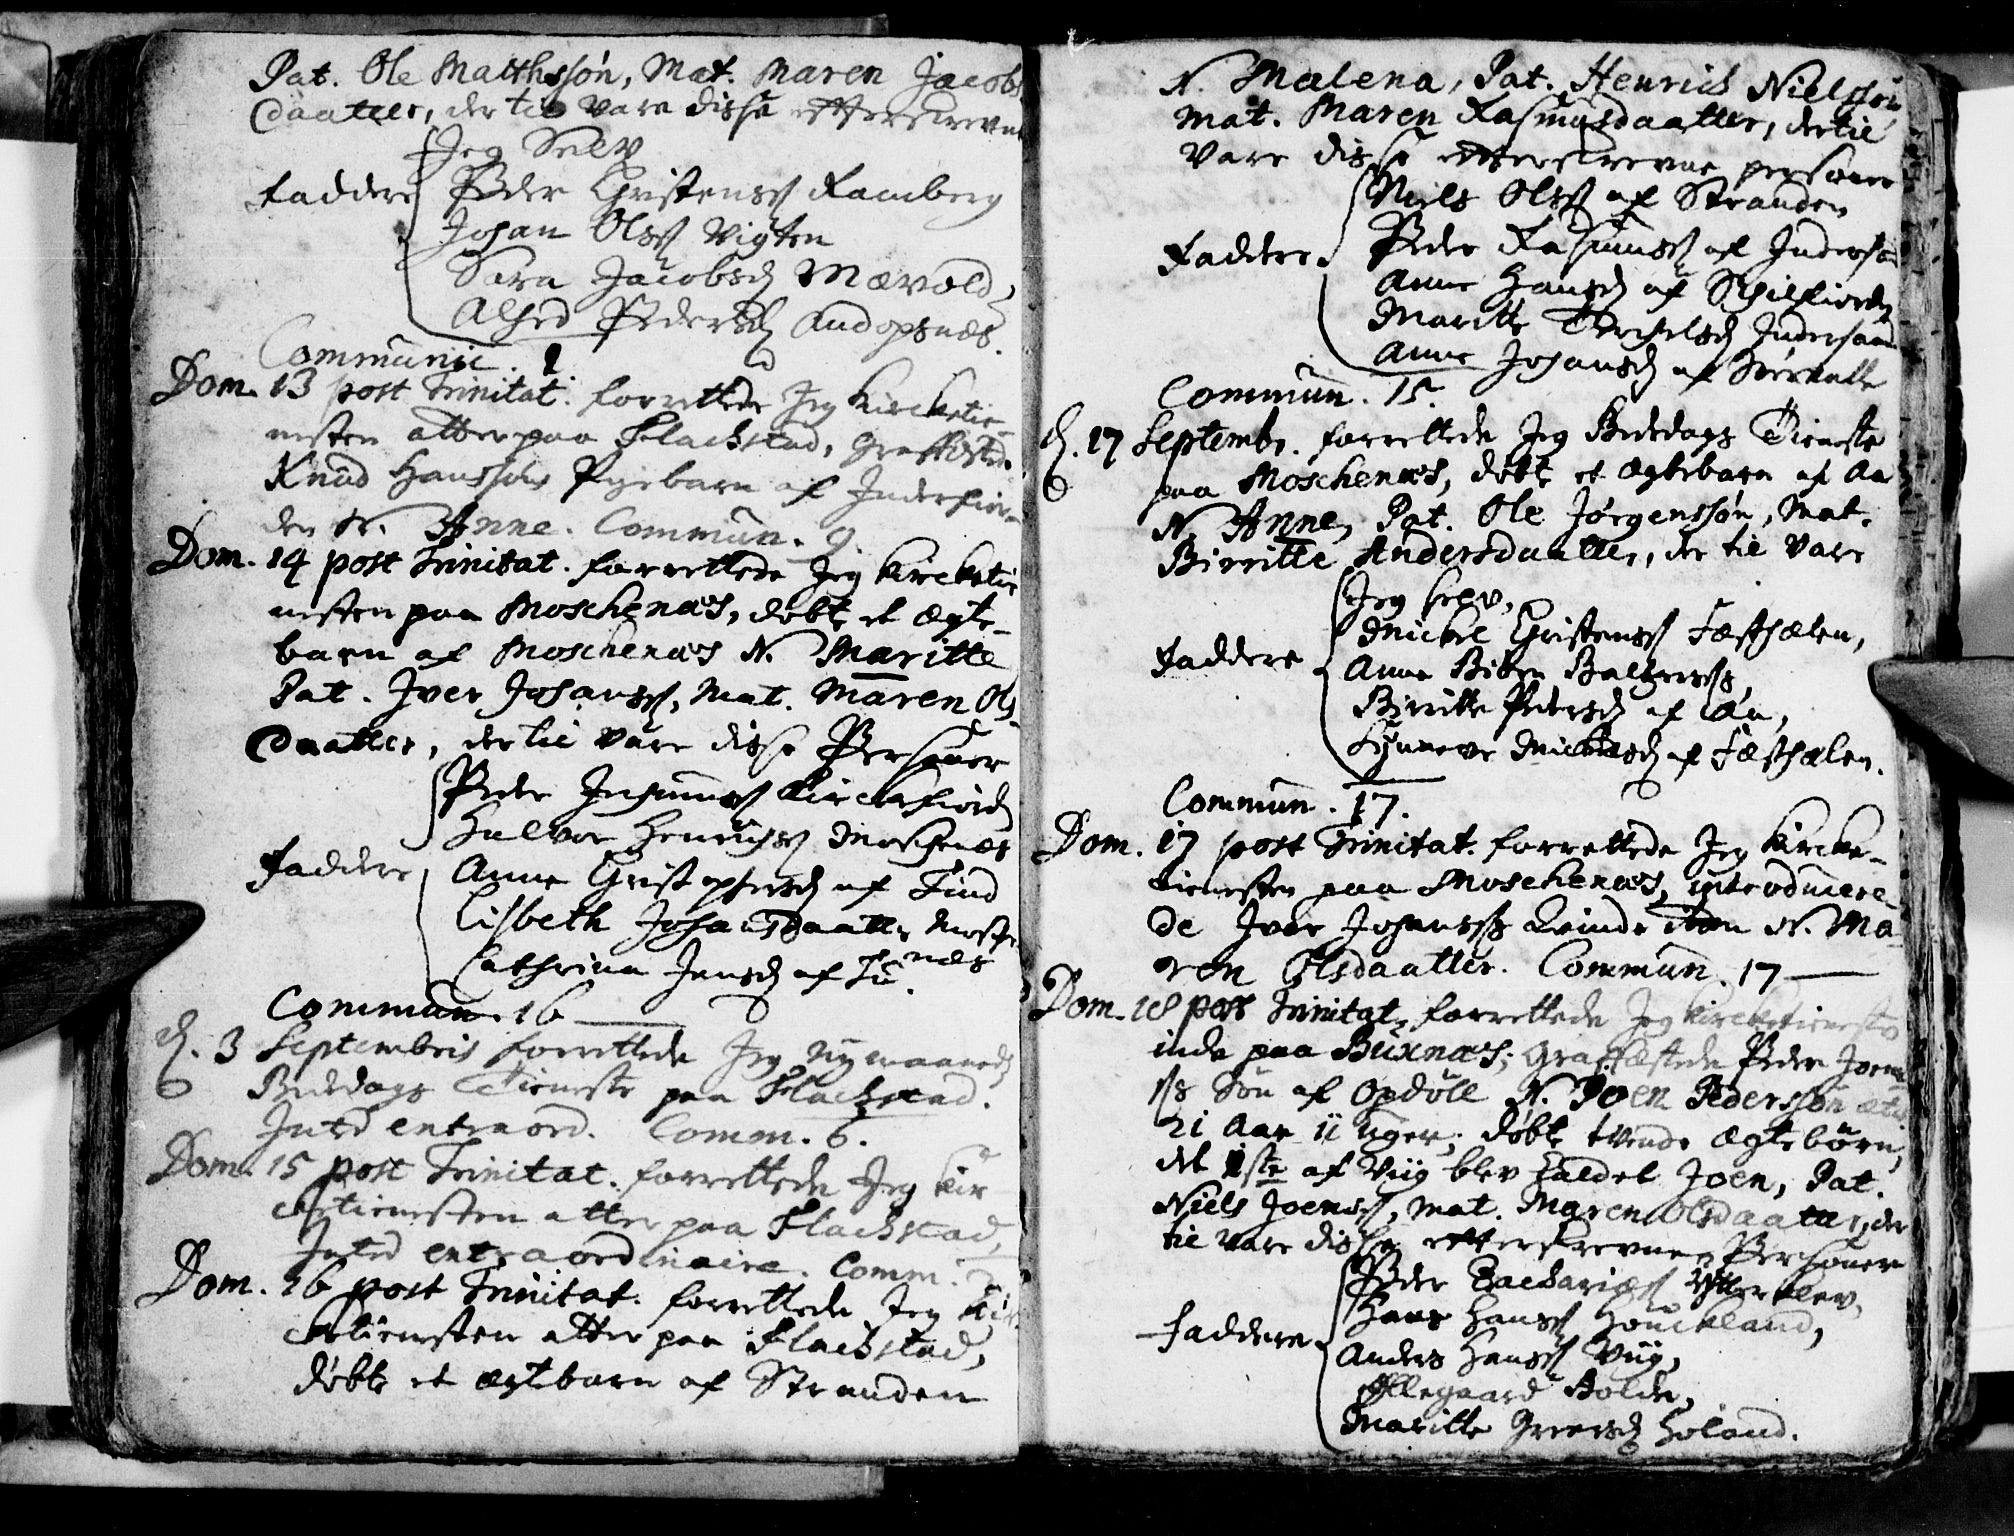 Pat. Ole Matthssøn, Mat. Maren Jacobs
daatter, der til vare disse effterskrevne
Jeg Selv
Faddere Peder Christenss Ramberg
Johan Olss Vigten
Sara Jacobsd Mævold,
Alhed Pedersd Andopsnæs.
Communic. 1
Dom. 13 post Trinitat. forrettede Jeg Kirketie-
nesten atter paa Flachstad, Graffæstede
Knud Hanssøns Pigebarn af Inderfior-
den N. Anne. Commun. 9.
Dom. 14 post Trinitat. forrettede Jeg Kircketie
nesten paa Moschenæs, døbte et Ægte-
barn af Moschenæs N. Maritte
Pat. Iver Johanss, Mat. Maren Ols
daatter, der til vare disse Personer
Peder Rasmuss Kirckefiord
Halvor Henrichss Moschenæs
Faddere Anne Christophersd af Tind
Lisbeth Johansdaatter Mosche
næs
Cathrina Jensd af
Commun. 16
d. 3 Septembris forrettede Jeg Nymaaneds
Bededags Tieneste paa Flachstad.
Inted extraord. Comm. 6.
Dom. 15 post Trinitat. forrettede Jeg Kir
cketienesten atter paa Flachstad,
Inted extraordinaire. Comm.
Dom. 16 post Trinitat. forrettede Jeg Kir
cketienesten atter paa Flachstad,
døbte et ægtebarn af Stranden
N. Malena, Pat. Henrich Nielssøn
Mat. Maren Rasmusdaatter, der til
vare disse effterskrevne personer
Niels Olss af Stranden
Faddere Peder Rasmuss af Indersand
Anne Hansd af Schilfiord
Maritte Indersand
Anne Johansd af
Commun. 15.
d. 17 Septembr. forrettede Jeg Bededags Tieneste
paa Moschenæs, døbte et Ægtebarn af Aa
N. Anne, Pat. Ole Jørgenssøn, Mat.
Birritte Andersdaatter, der til vare
Jeg selv,
Mickel Christenss Festhælen,
Faddere Anna Biben Baltzerss,
Birritte Pedersd af Aa,
Synneve Mickelsd af Festhælen.
Commun. 17.
Dom. 17 post Trinitat. forrettede Jeg Kircke-
tienesten paa Moschenæs, introducere-
de Iver Johanss Qvinde N. Ma-
ren Olsdaatter. Commun. 17
Dom. 18 post Trinitat. forrettede Jeg Kircketieneste
inde paa Buxnæs, Graffæstede Peder Joen
ss Søn af Opdøll N. Joen Pederssøn
21 Aar 11 uger, døbte tvende ægte børn,
det 1ste af Viig blev kaldet Joen, Pat.
Niels Joenss, Mat. Maren Olsdaatter, der
til vare disse effterskrevne Personer
Peder Zachariæss Ytterklev,
Hans Hanss Houckland,
Faddere Anders Hanss Viig,
Ellegaard Bolde,
Maritte Greersd Holand.